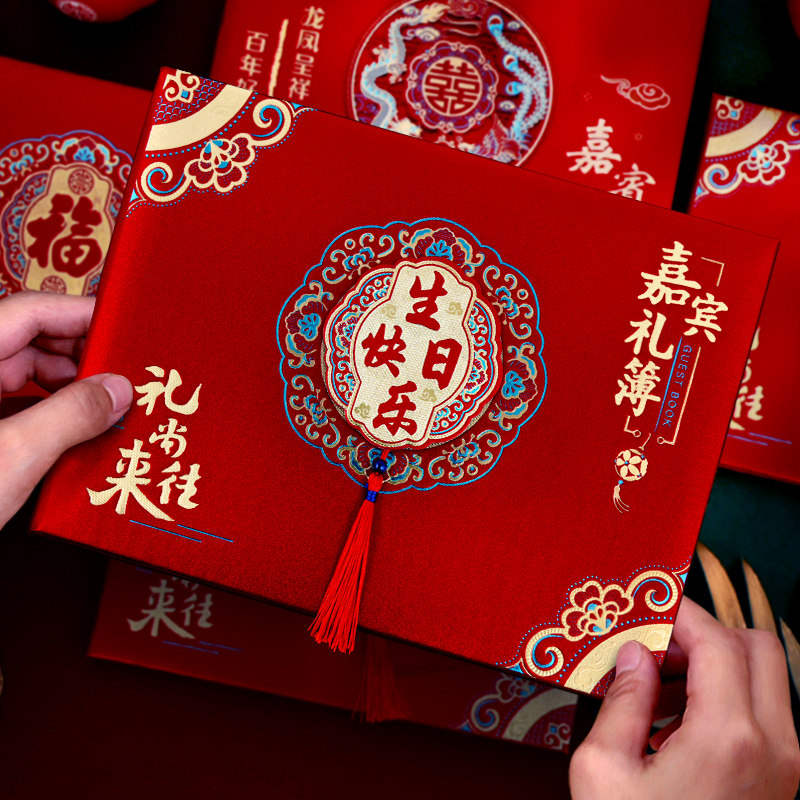 龙凤呈祥
百年好
囍
嘉宾
福
生日
快乐
嘉宾
礼簿
GUEST BOOK
礼尚
往来
尚往
来
往